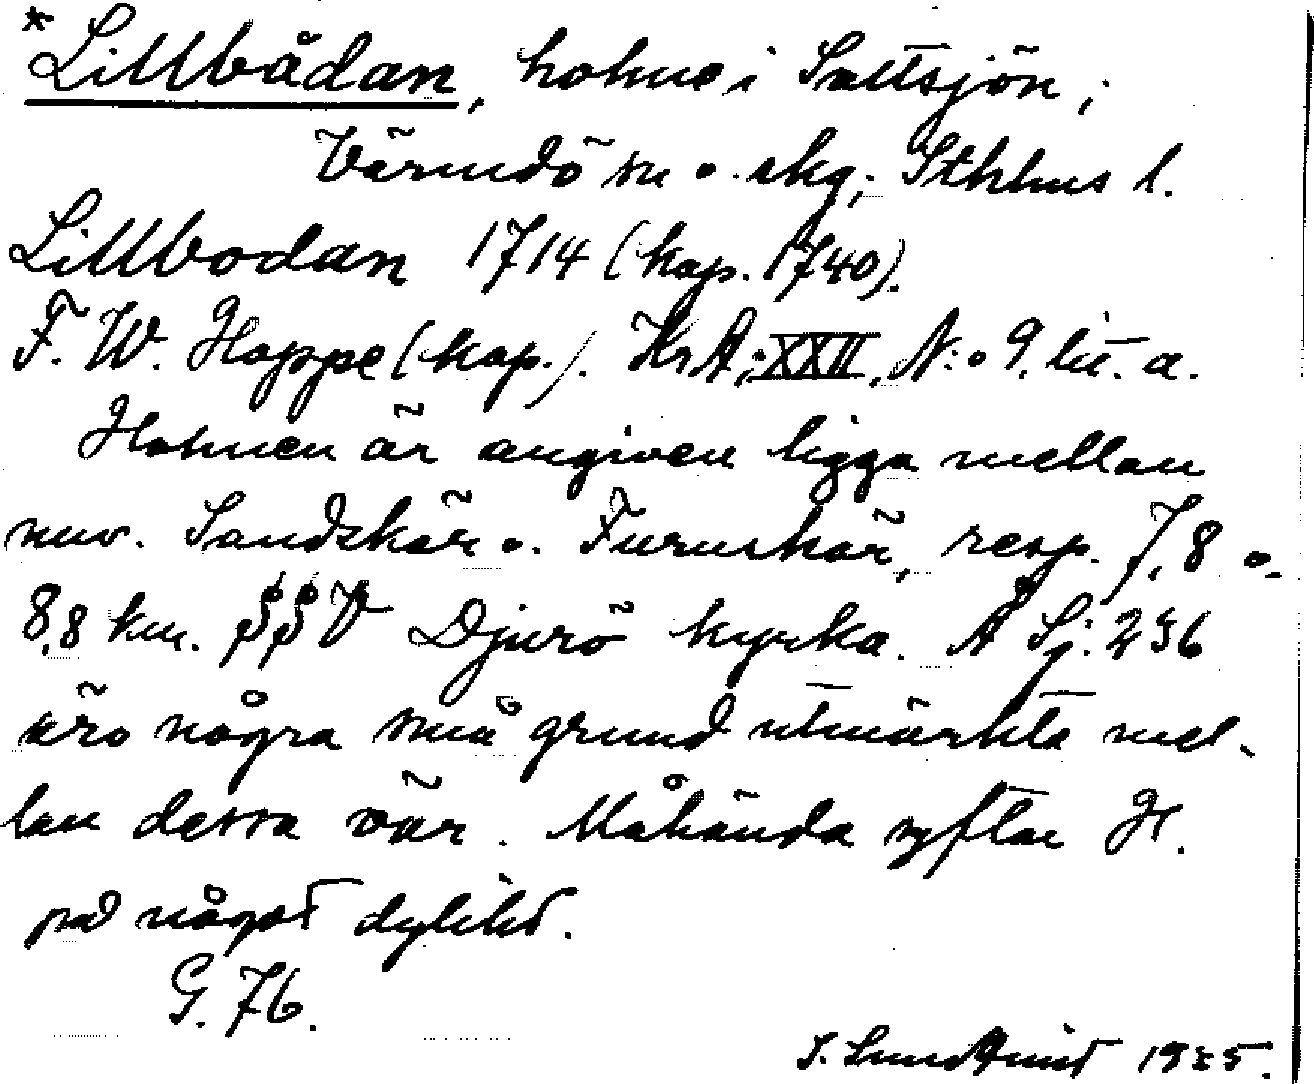 *Lillbådan, holme i Saltsjön,
Värmdö sn o. skg; Sthlms l.
Lillbodan 1714 (kop. 1740).
F. W. Hoppe (kop.). KrA; XXII, N:o 9, lit. a.
Holmen är angiven ligga mellan
nuv. Sandskär o. Furuskär, resp. 7,8 o.
8,8 km. SSV Djurö kyrka. Å Sj: 236
äro några små grund utmärkta mel-
lan dessa skär. Måhända syftar H.
på något dylikt.
G. 76.
Lundkvist 1925.